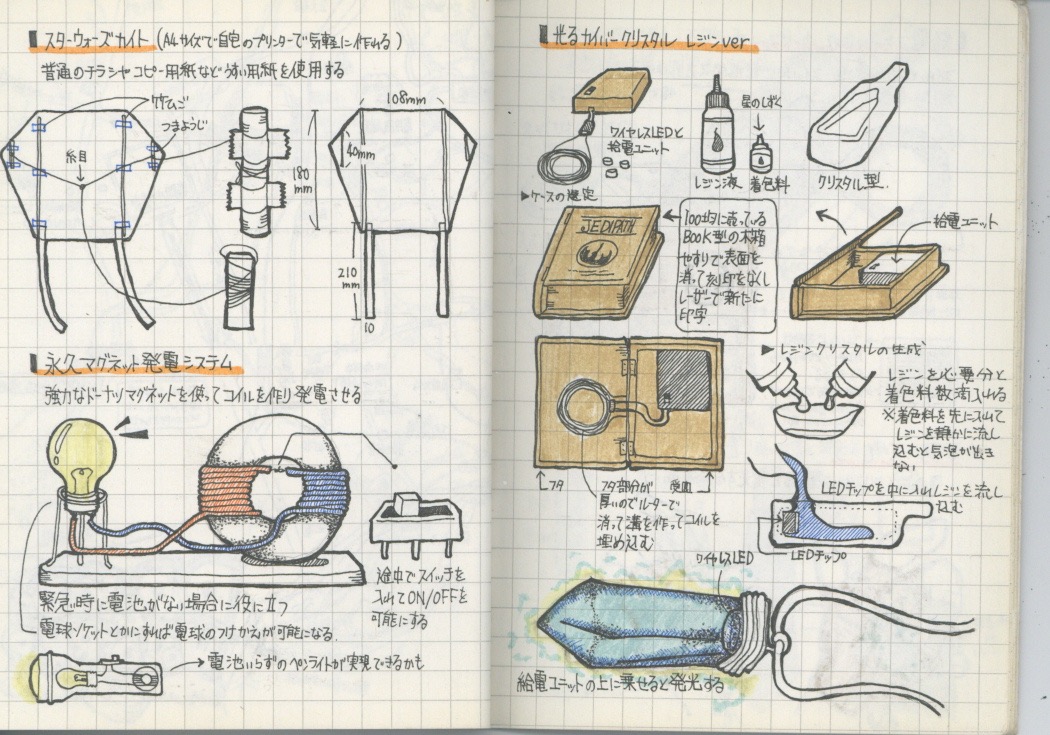 スターウォーズカイト (A4サイズで自宅のプリンターで気軽に作れる)
普通のチラシやコピー用紙などうすい用紙を使用する
竹ひご
つまようじ
糸目
180
mm
108mm
40mm
210
mm
10
永久マグネット発電システム
強力なドーナツマグネットを使ってコイルを作り発電させる
途中でスイッチを
入れてON/OFFを
可能にする
緊急時に電池がない場合に役に立つ
電球ソケットとかにすれば電球のつけかえが可能になる.
→電池いらずのペンライトが実現できるかも
光るカイバークリスタル レジンver
ワイヤレスLEDと
給電ユニット
レジン液
星のしずく
着色料
クリスタル型.
▶ケースの選定
JEDIPATH
100均に売っている
BOOK型の木箱
やすりで表面を
消って刻印をなくし
レーザーで新たに
印字.
給電ユニット
フタ
フタ部分が
厚いのでルーターで
消って溝を作ってコイルを
埋め込む
受皿
▶レジンクリスタルの生成
レジンを必要分と
着色料数滴入れる
※着色料を先に入れて
レジンを静かに流し
込むと気泡が出き
ない
LEDチップを中に入れレジンを流し
込む
LEDチップ
ワイヤレスLED
給電ユニットの上に乗せると発光する